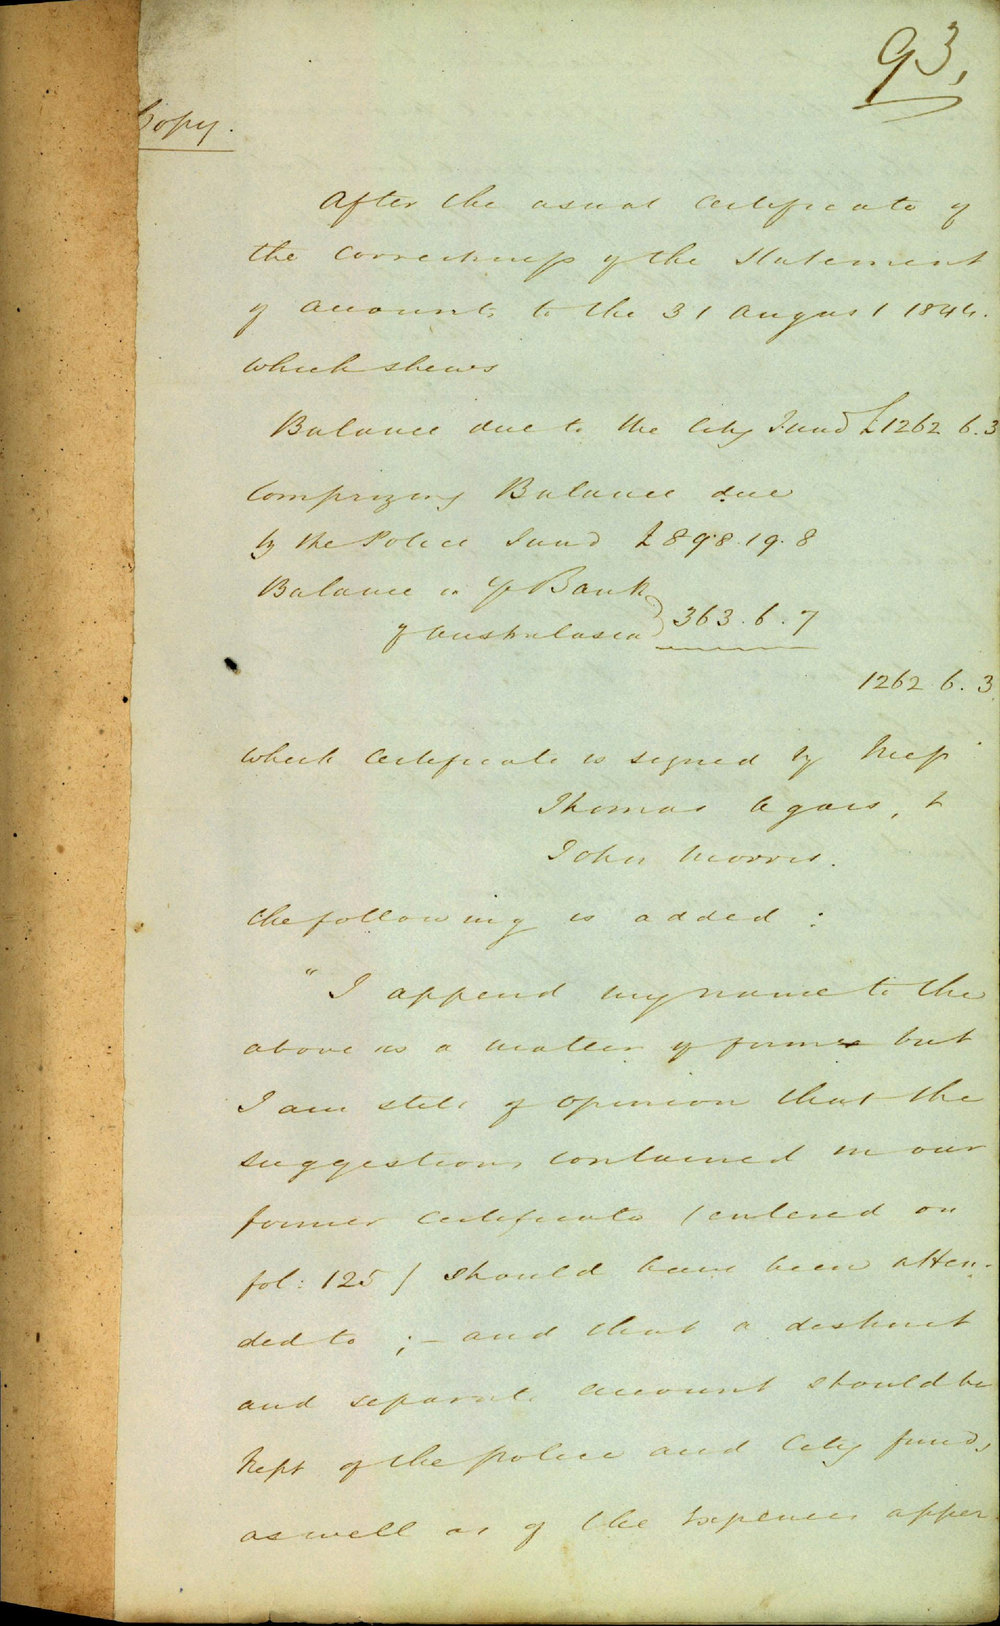 93,
Copy.
After the usual Certificate of
the Correctness of the Statement
of accounts to the 31 August 1844.
which shews
Balance due to the City Fund £1262 6.3
Comprizing Balance due
by the Police Fund £898.19.8
Balance in ye Bank
of Australasia } 363.6.7
1262 6.3
which Certificate is signed by Messrs
Thomas Agars, &
John Morris.
the following is added :
"I append my name to the
above as a matter of form but
I am still of opinion that the
suggestions contained in our
former Certificate (entered on
fol: 125) should have been atten-
ded to ;- and that a distinct
and separate account should be
kept of the police and City funds
as well as of the Expences apper-